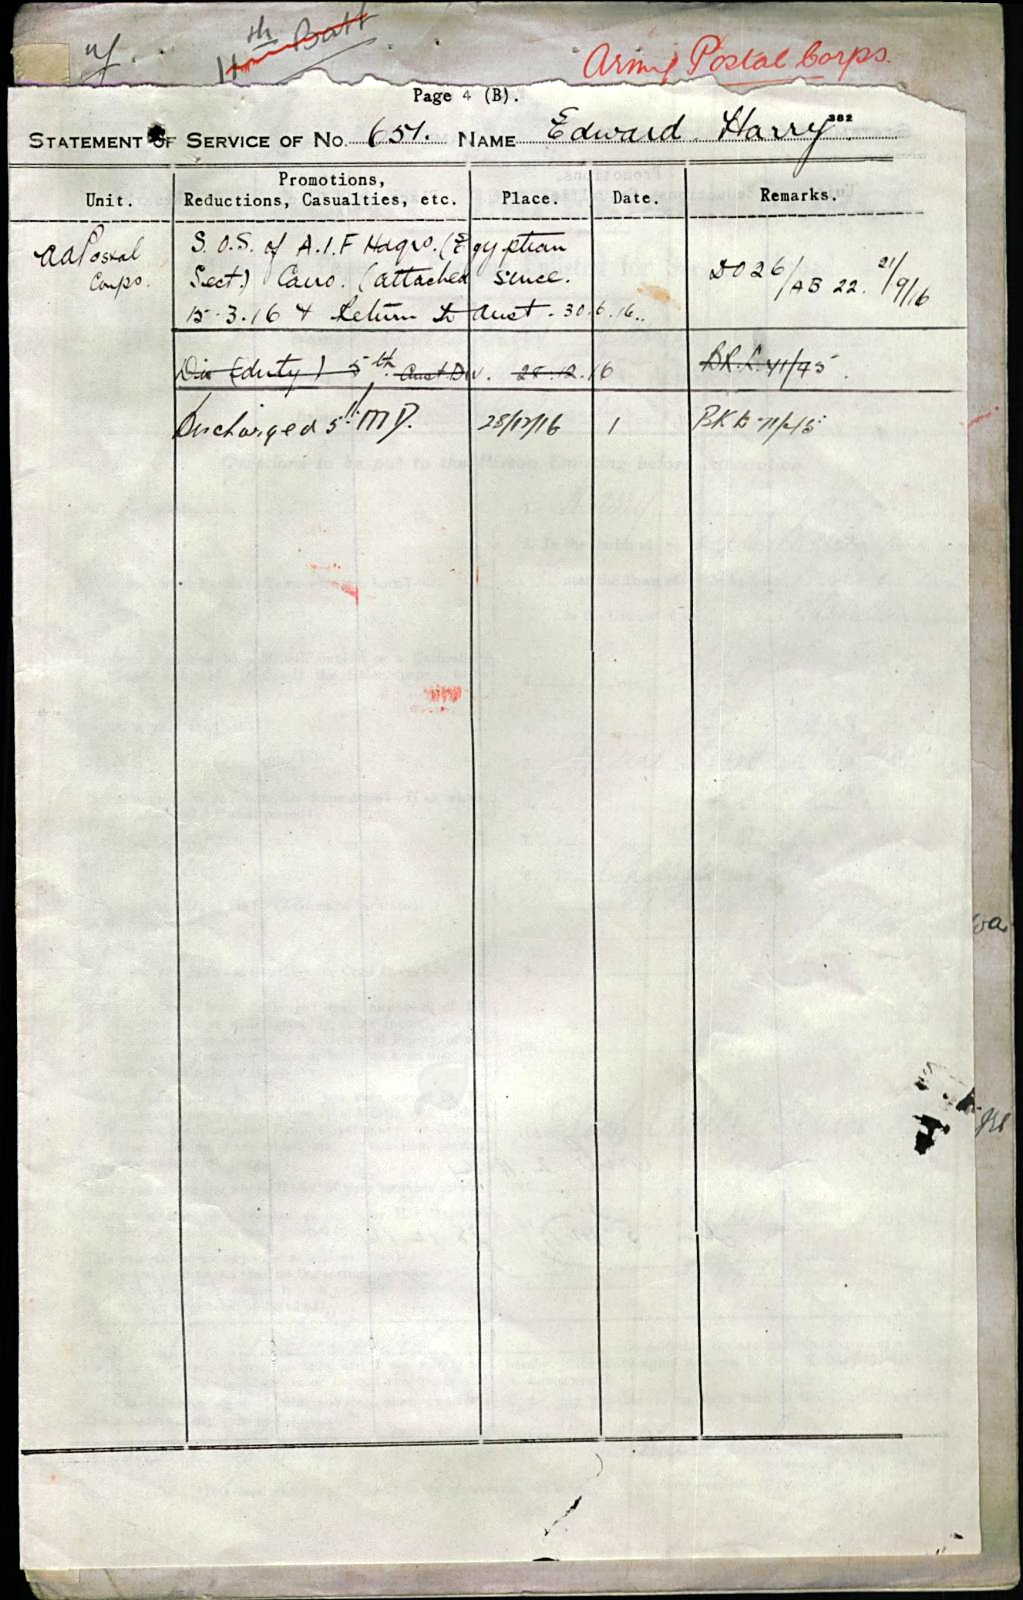 11th Batt
Army Postal Corps.
Page 4 (B).
STATEMENT OF SERVICE OF No. 651. NAME Edward Harry 382
Unit. Promotions, Reductions, Casualties, etc. Place. Date. Remarks.
AAPostal Corps.
S.O.S. of A.I.F Hdqrs. (Egyptian
Sect.) Cairo. (attached since.
15-3.16 & Return to Aust - 30.6.16..
DO26/AB 22. 21/9/16
Dis (duty) 5th Aust Div. 28.12.16
Discharged 5" MD. 28/12/16 1